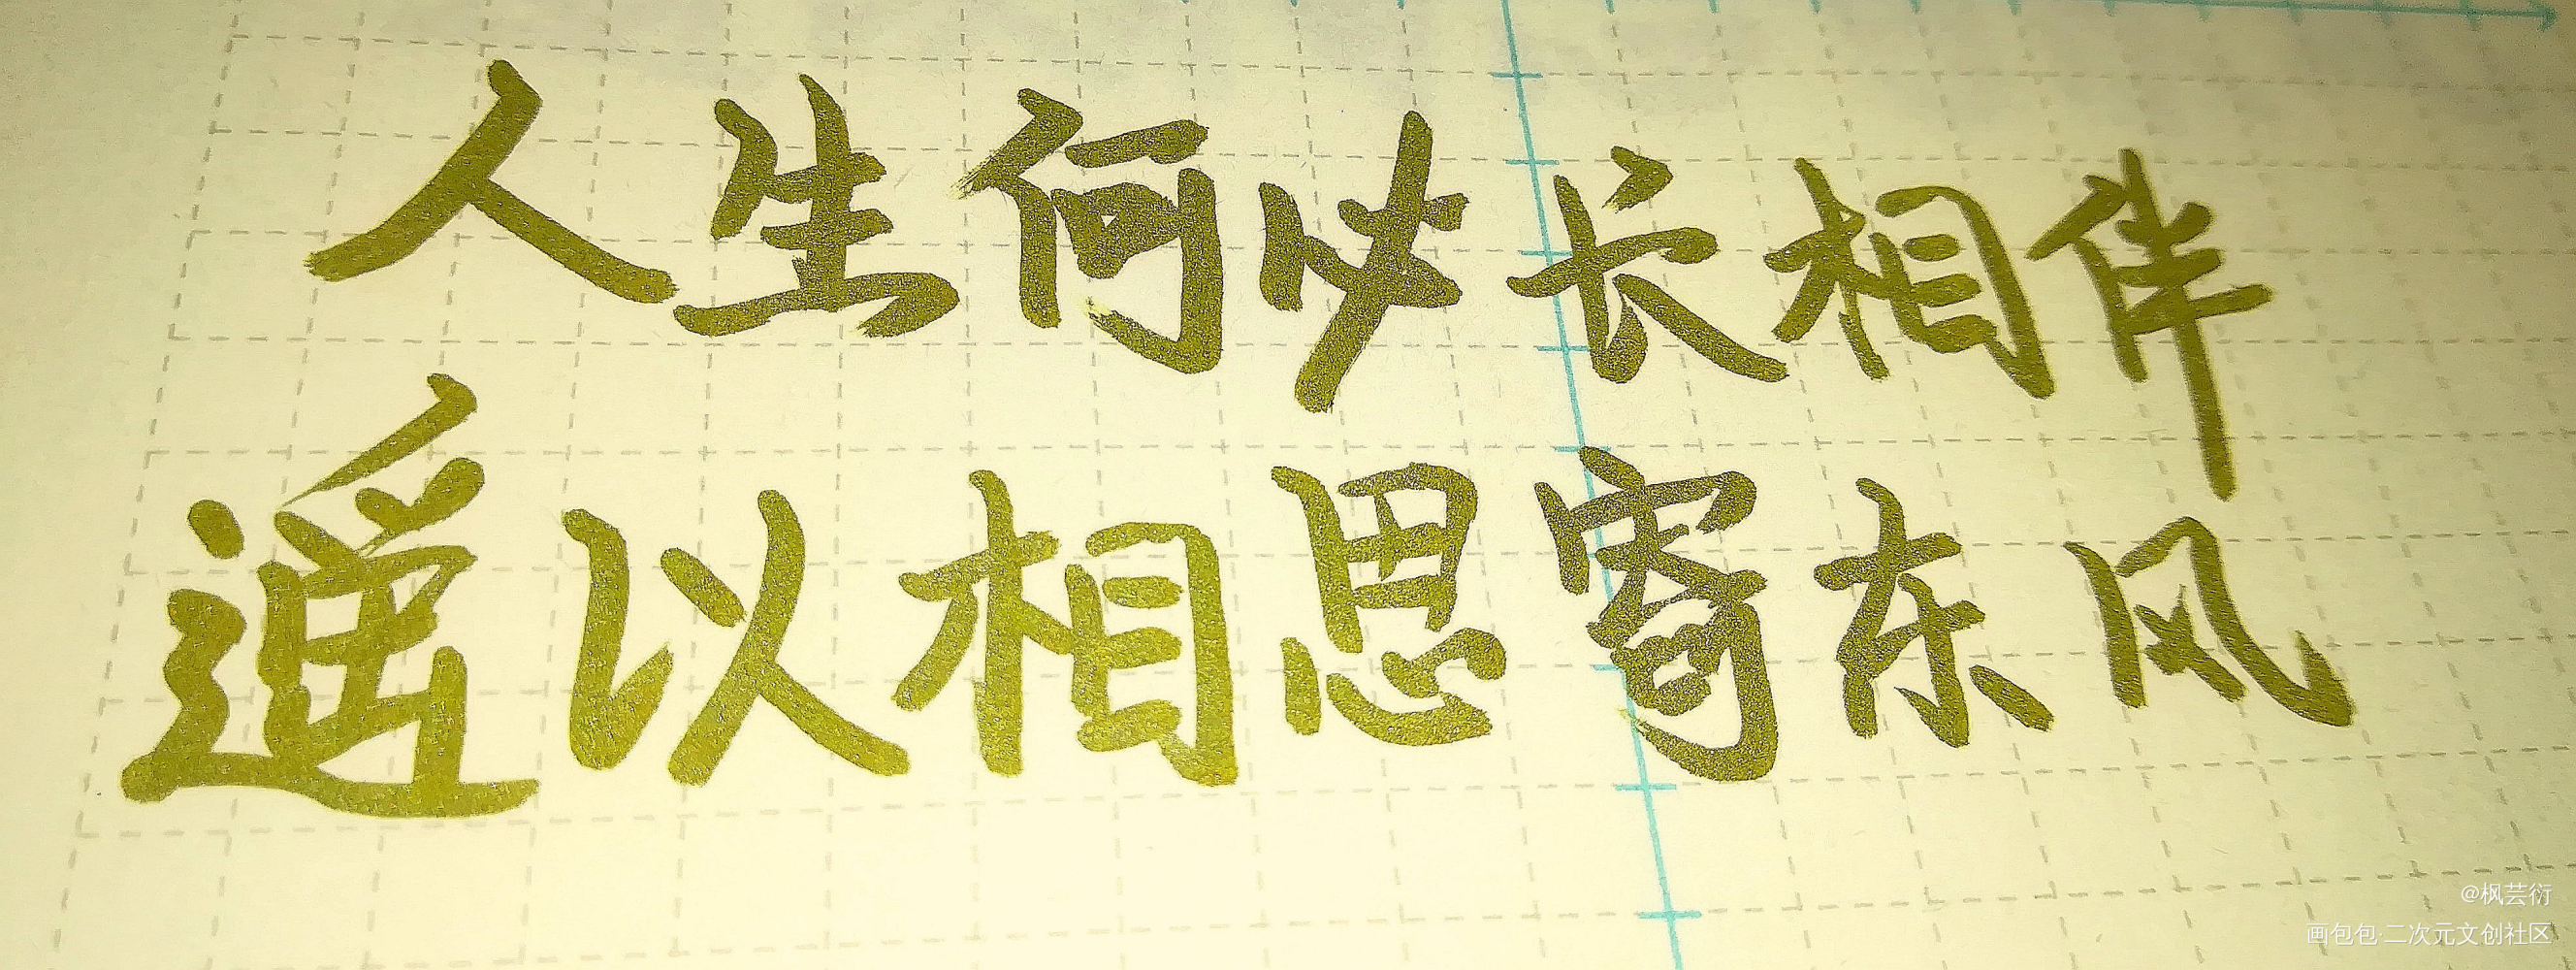 人生何以长相伴
遥以相思寄东风
@枫芸衍
画包包·二次元文创社区